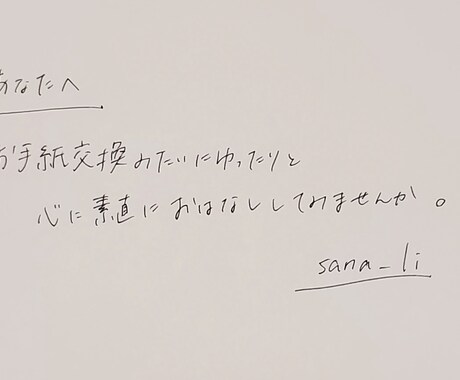 あなたへ
お手紙交換みたいにゆったりと
心に素直におはなししてみませんか。
sana_li